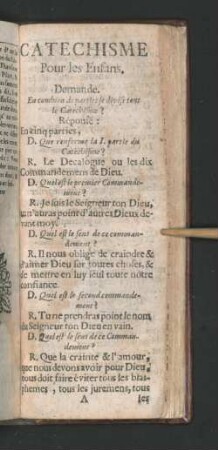 CATECHISME
Pour les Enfans.
Demande.
En combien de parties se divise tout
le Catechisme?
Réponse:
En cinq parties,
D. Que renferme la I. partie du
Catechisme?
R. Le Decalogue ou les dix
Commandemens de Dieu.
D. Quel est le premier Commande-
ment?
R. Je suis le Seigneur ton Dieu,
tu n'auras point d'autres Dieux de-
vant moy.
D. Quel est le sens de ce comman-
dement?
R. Il nous oblige de craindre &
d'aimer Dieu sur toutes choses, &
de mettre en luy seul toute nôtre
confiance.
D. Quel est le second commande-
ment?
R. Tu ne prendras point le nom
du Seigneur ton Dieu en vain.
D. Quel est le sens de ce Comman-
dement?
R. Que la crainte & l'amour,
que nous devons avoir pour Dieu,
nous doit faire éviter tous les blas-
phemes, tous les juremens, tous
A les